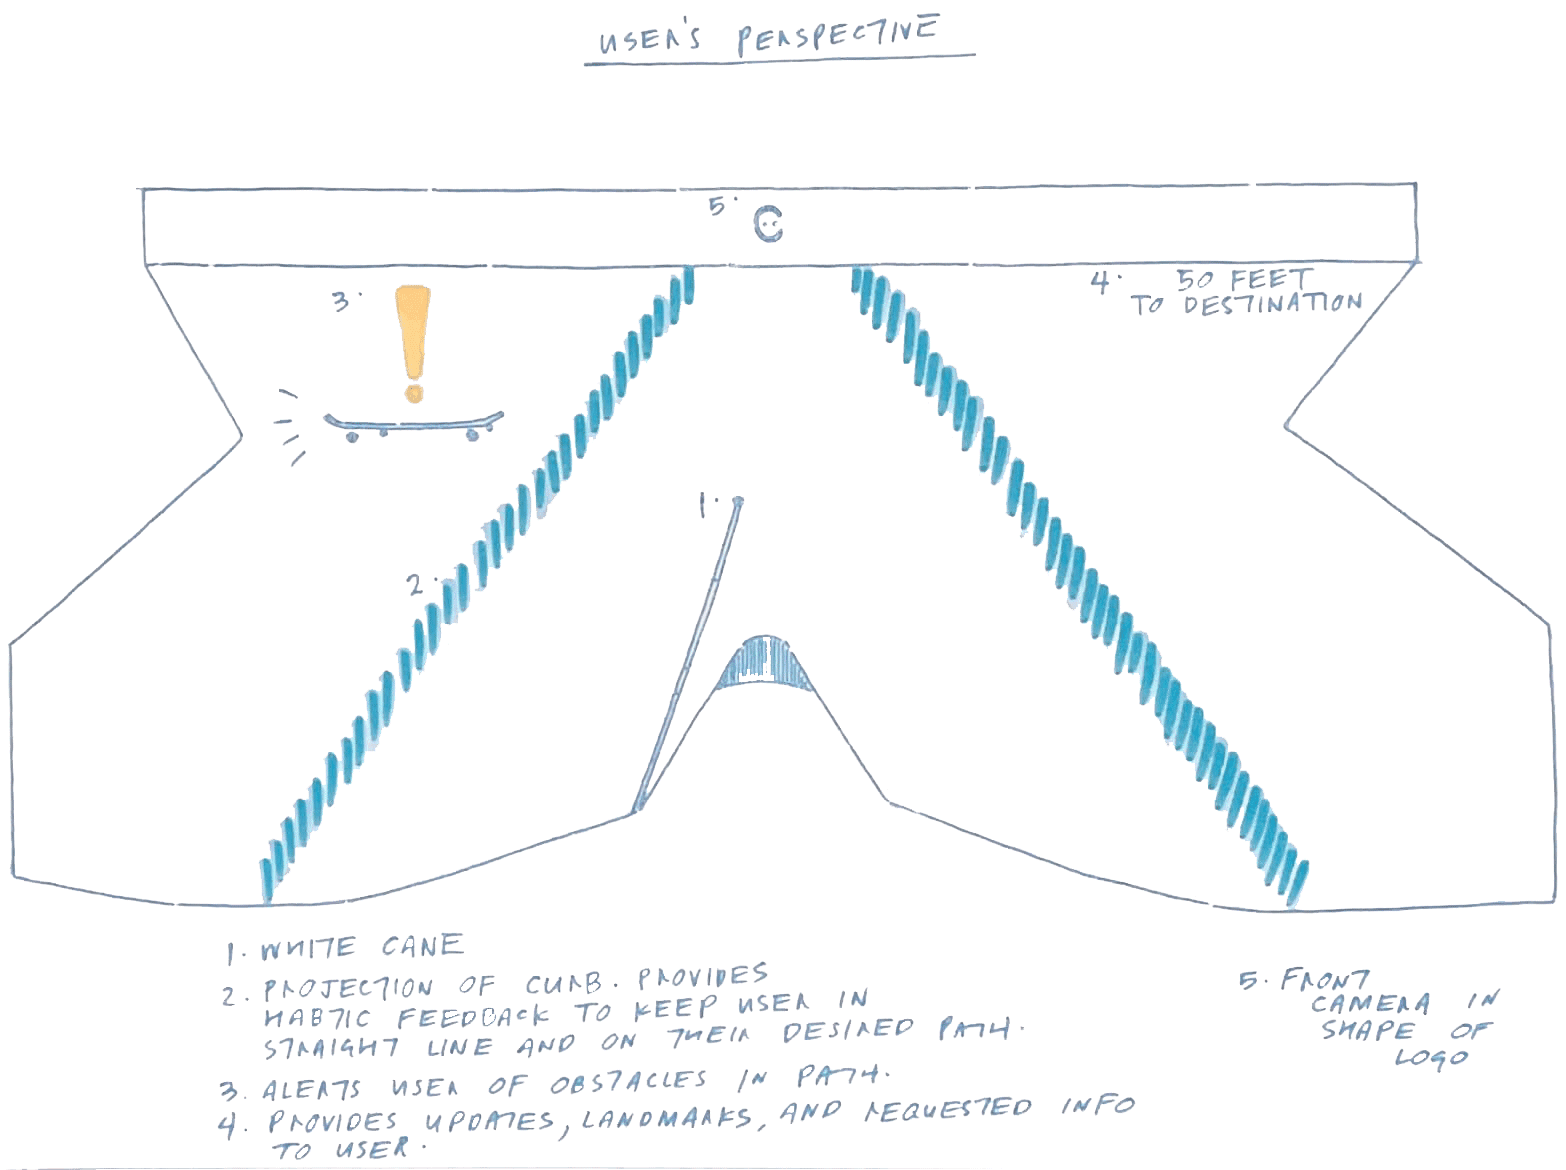 USER'S PERSPECTIVE
5.
3.
4. 50 FEET
TO DESTINATION
1.
2.
1. WHITE CANE
2. PROJECTION OF CURB. PROVIDES
HABTIC FEEDBACK TO KEEP USER IN
STRAIGHT LINE AND ON THEIR DESIRED PATH.
3. ALERTS USER OF OBSTACLES IN PATH.
4. PROVIDES UPDATES, LANDMARKS, AND REQUESTED INFO
TO USER.
5. FRONT
CAMERA IN
SHAPE OF
LOGO